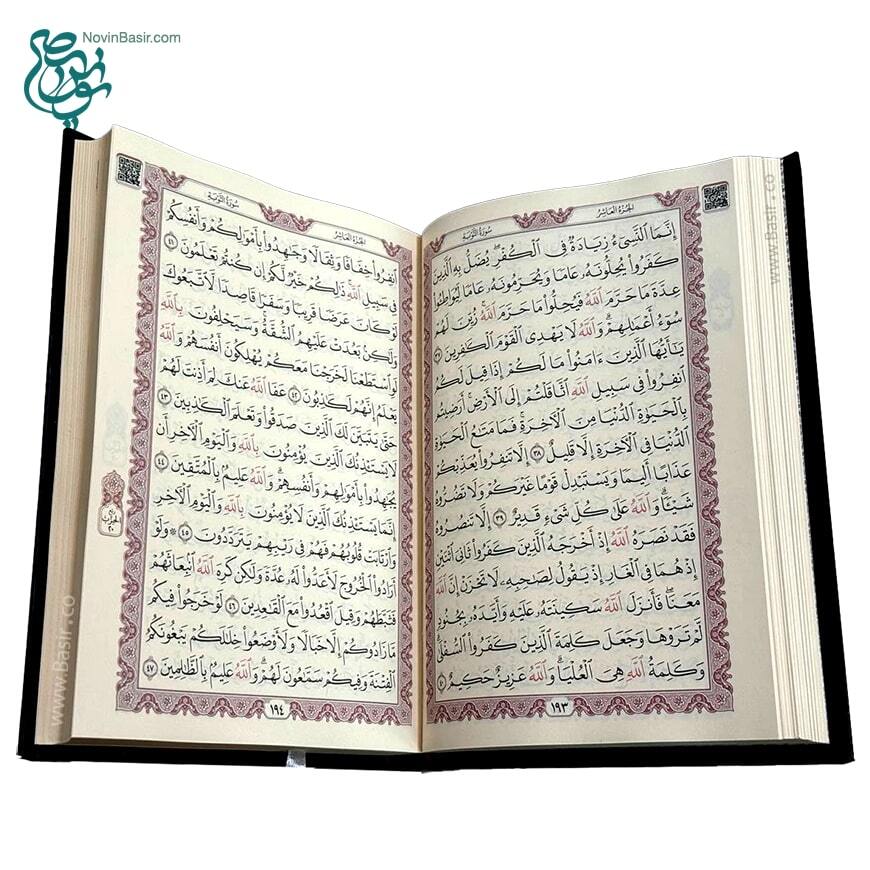 NovinBasir.com
الجزء العاشر
سورة التوبة
إِنَّمَا النَّسِيءُ زِيَادَةٌ فِي الْكُفْرِ يُضَلُّ بِهِ الَّذِينَ
كَفَرُوا يُحِلُّونَهُ عَامًا وَيُحَرِّمُونَهُ عَامًا لِيُوَاطِئُوا
عِدَّةَ مَا حَرَّمَ اللَّهُ فَيُحِلُّوا مَا حَرَّمَ اللَّهُ زُيِّنَ لَهُمْ
سُوءُ أَعْمَٰلِهِمْ وَاللَّهُ لَا يَهْدِي الْقَوْمَ الْكَٰفِرِينَ ٣٧
يَٰأَيُّهَا الَّذِينَ ءَامَنُوا مَا لَكُمْ إِذَا قِيلَ لَكُمُ
انْفِرُوا فِي سَبِيلِ اللَّهِ اثَّاقَلْتُمْ إِلَى الْأَرْضِ أَرَضِيتُمْ
بِالْحَيَوٰةِ الدُّنْيَا مِنَ الْآخِرَةِ فَمَا مَتَٰعُ الْحَيَوٰةِ
الدُّنْيَا فِي الْآخِرَةِ إِلَّا قَلِيلٌ ٣٨ إِلَّا تَنْفِرُوا يُعَذِّبْكُمْ
عَذَابًا أَلِيمًا وَيَسْتَبْدِلْ قَوْمًا غَيْرَكُمْ وَلَا تَضُرُّوهُ
شَيْئًا وَاللَّهُ عَلَىٰ كُلِّ شَيْءٍ قَدِيرٌ ٣٩ إِلَّا تَنْصُرُوهُ
فَقَدْ نَصَرَهُ اللَّهُ إِذْ أَخْرَجَهُ الَّذِينَ كَفَرُوا ثَانِيَ اثْنَيْنِ
إِذْ هُمَا فِي الْغَارِ إِذْ يَقُولُ لِصَٰحِبِهِ لَا تَحْزَنْ إِنَّ اللَّهَ
مَعَنَا فَأَنْزَلَ اللَّهُ سَكِينَتَهُ عَلَيْهِ وَأَيَّدَهُ بِجُنُودٍ
لَمْ تَرَوْهَا وَجَعَلَ كَلِمَةَ الَّذِينَ كَفَرُوا السُّفْلَىٰ
وَكَلِمَةُ اللَّهِ هِيَ الْعُلْيَا وَاللَّهُ عَزِيزٌ حَكِيمٌ ٤٠
١٩٣
الجزء العاشر
سورة التوبة
انْفِرُوا خِفَافًا وَثِقَالًا وَجَٰهِدُوا بِأَمْوَٰلِكُمْ وَأَنْفُسِكُمْ
فِي سَبِيلِ اللَّهِ ذَٰلِكُمْ خَيْرٌ لَكُمْ إِنْ كُنْتُمْ تَعْلَمُونَ ٤١
لَوْ كَانَ عَرَضًا قَرِيبًا وَسَفَرًا قَاصِدًا لَاتَّبَعُوكَ
وَلَٰكِنْ بَعُدَتْ عَلَيْهِمُ الشُّقَّةُ وَسَيَحْلِفُونَ بِاللَّهِ
لَوِ اسْتَطَعْنَا لَخَرَجْنَا مَعَكُمْ يُهْلِكُونَ أَنْفُسَهُمْ وَاللَّهُ
يَعْلَمُ إِنَّهُمْ لَكَٰذِبُونَ ٤٢ عَفَا اللَّهُ عَنْكَ لِمَ أَذِنْتَ لَهُمْ
حَتَّىٰ يَتَبَيَّنَ لَكَ الَّذِينَ صَدَقُوا وَتَعْلَمَ الْكَٰذِبِينَ ٤٣
لَا يَسْتَٔذِنُكَ الَّذِينَ يُؤْمِنُونَ بِاللَّهِ وَالْيَوْمِ الْآخِرِ أَنْ
يُجَٰهِدُوا بِأَمْوَٰلِهِمْ وَأَنْفُسِهِمْ وَاللَّهُ عَلِيمٌ بِالْمُتَّقِينَ ٤٤
إِنَّمَا يَسْتَٔذِنُكَ الَّذِينَ لَا يُؤْمِنُونَ بِاللَّهِ وَالْيَوْمِ الْآخِرِ
وَارْتَابَتْ قُلُوبُهُمْ فَهُمْ فِي رَيْبِهِمْ يَتَرَدَّدُونَ ٤٥ وَلَوْ
أَرَادُوا الْخُرُوجَ لَأَعَدُّوا لَهُ عُدَّةً وَلَٰكِنْ كَرِهَ اللَّهُ انْبِعَاثَهُمْ
فَثَبَّطَهُمْ وَقِيلَ اقْعُدُوا مَعَ الْقَٰعِدِينَ ٤٦ لَوْ خَرَجُوا فِيكُمْ
مَا زَادُوكُمْ إِلَّا خَبَالًا وَلَأَوْضَعُوا خِلَٰلَكُمْ يَبْغُونَكُمُ
الْفِتْنَةَ وَفِيكُمْ سَمَّٰعُونَ لَهُمْ وَاللَّهُ عَلِيمٌ بِالظَّٰلِمِينَ ٤٧
١٩٤
www.Basir.co
www.Basir.co